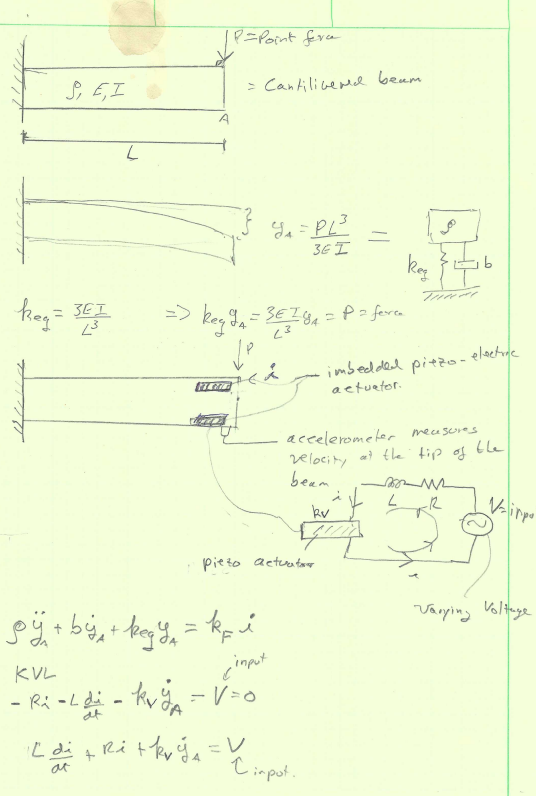 P = Point force
ρ, E, I
= Cantilivered beam
A
L
y_A = PL^3/3EI =
ρ
keq
b
keq = 3EI/L^3 => keq y_A = 3EI/L^3 y_A = P = force
P
i
imbedded piezo-electric
actuator.
accelerometer measures
velocity at the tip of the
beam
i
L
R
kv
V=inpu
i
piezo actuator
Varying Voltage
ρÿ_A + bẏ_A + keq y_A = k_F i
KVL
input
- Ri - L di/dt - kv ẏ_A - V = 0
L di/dt + Ri + kv ẏ_A = V
input.